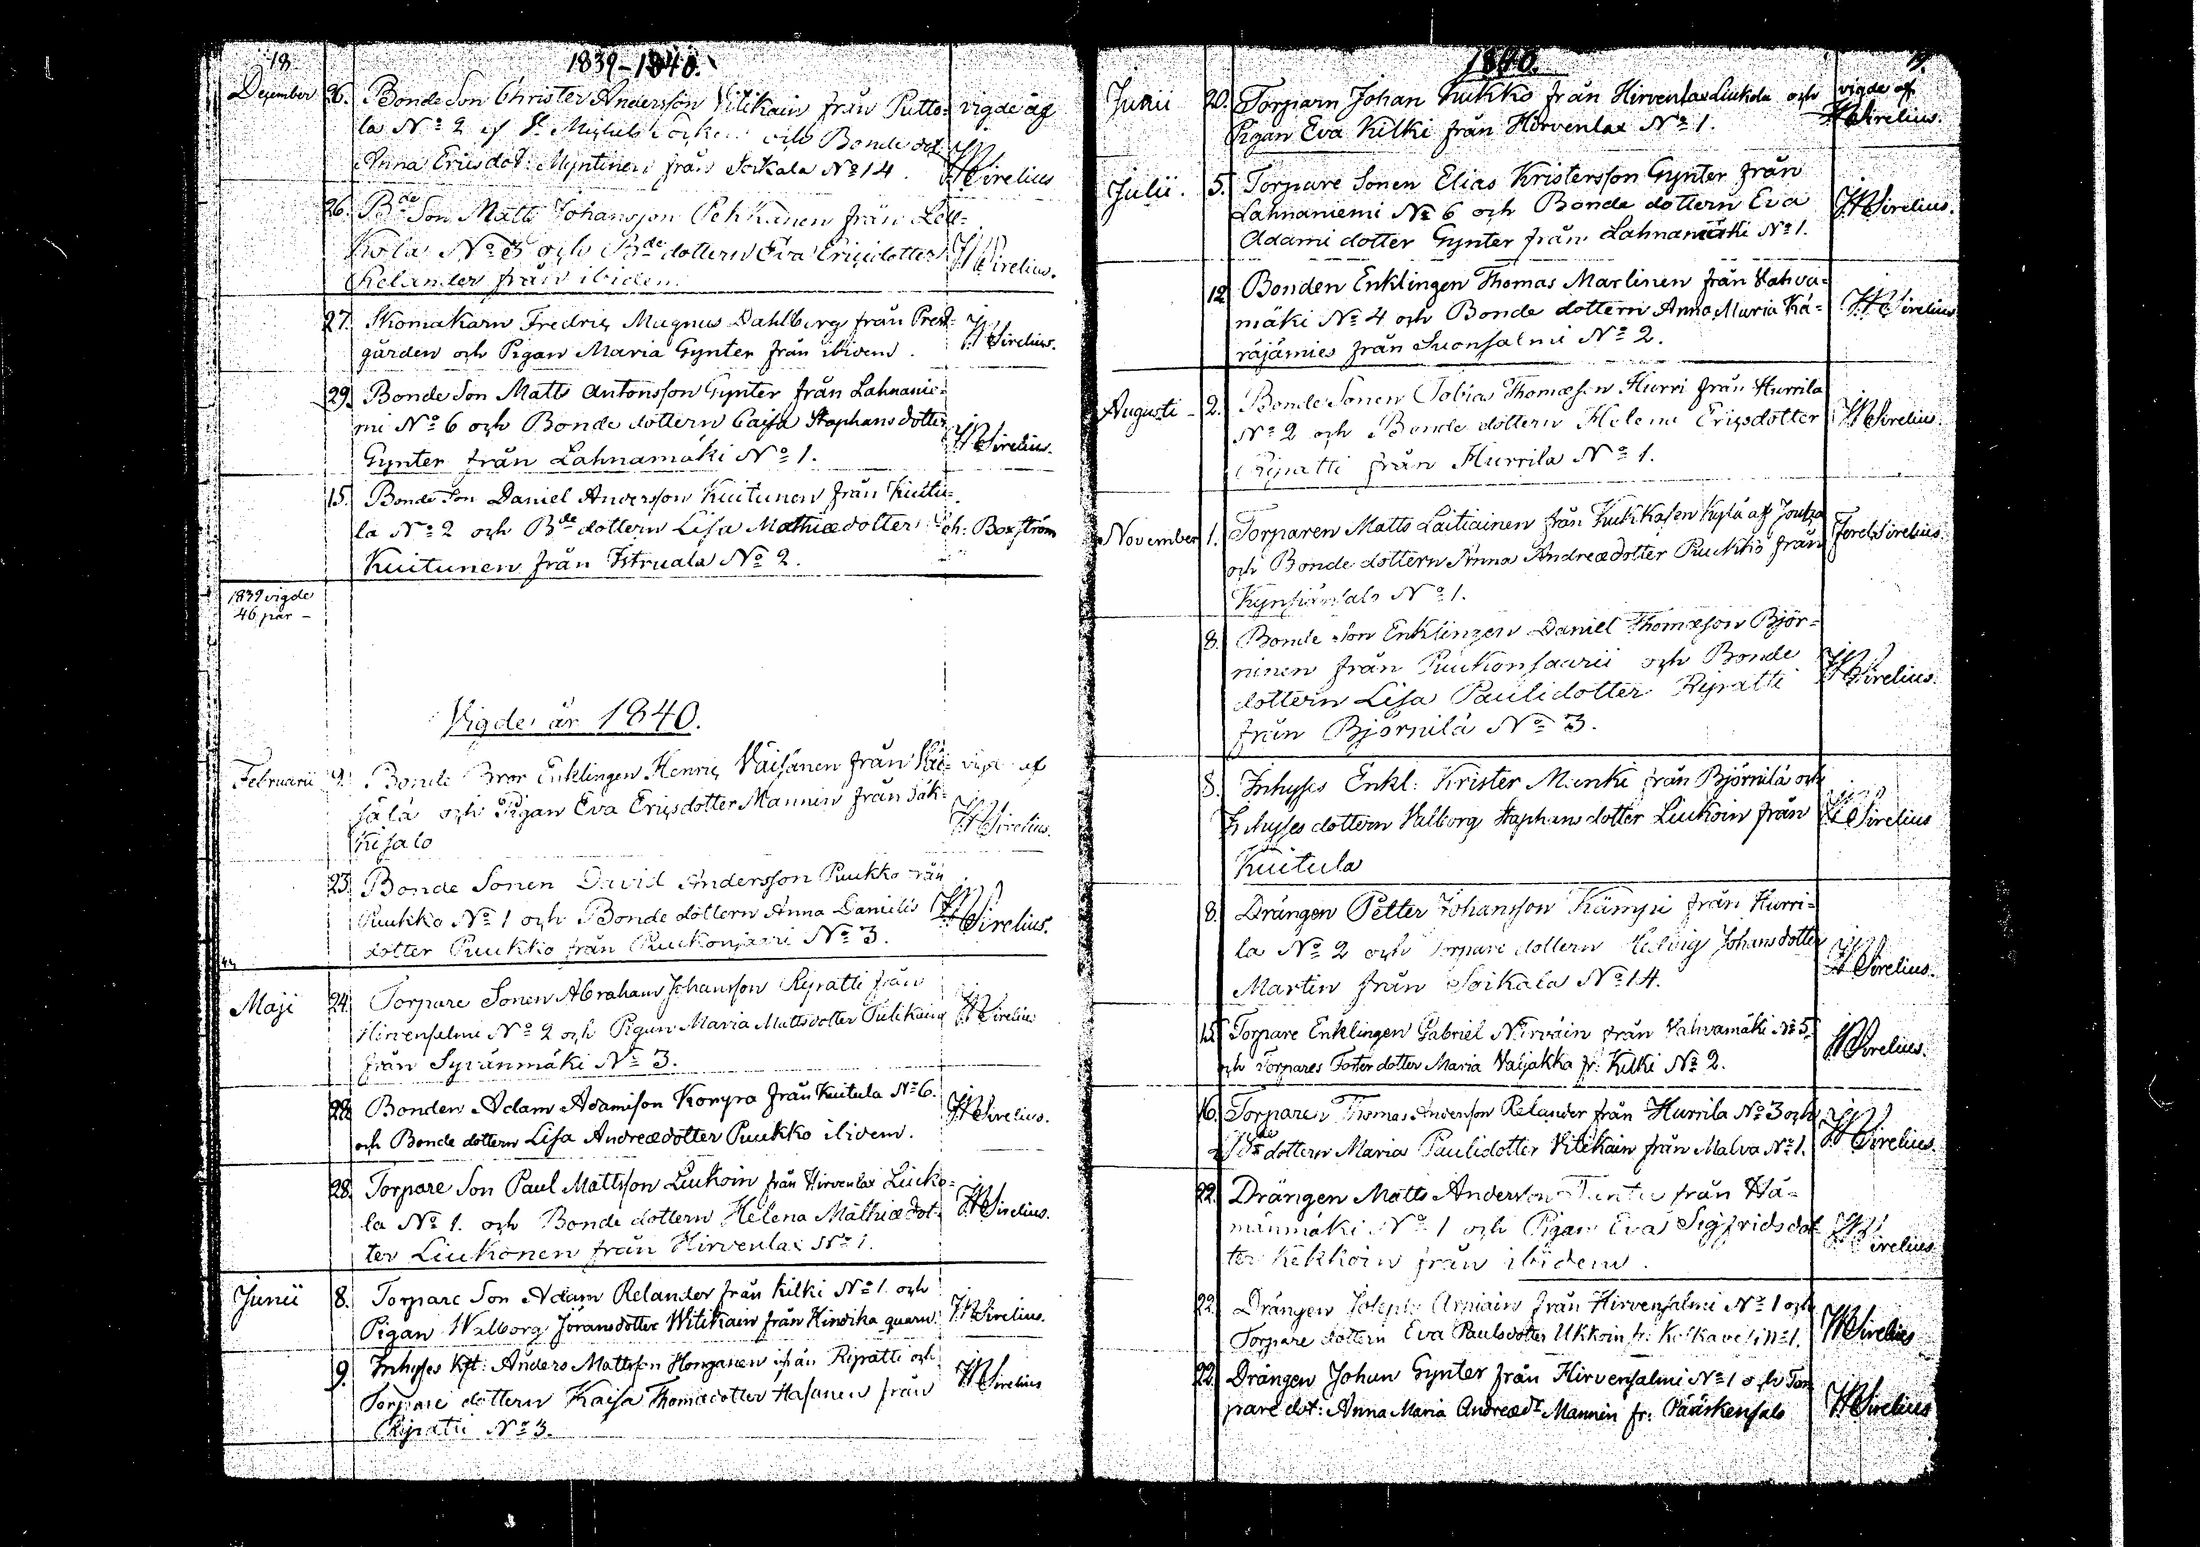 18.
1839-1840.
December 26. Bonde Son Christer Andersson Vitikain från Putto= vigde af
la No 2 af St Michels Soken och Bonde dot.
Anna Ericsdot: Myntinen från Soikala No 14. Sirelius
26. Bde Son Matts Johansson Pekkanen från Lell=
kola No 3 och Bde dottern Eva Ericsdotter Sirelius.
Relander från ibidem.
27. Skomakarn Fredric Magnus Dahlberg från Prest=
gården och Pigan Maria Gynter från ibidem. Sirelius.
29. Bonde Son Matts Antonsson Gynter från Lahnanie=
mi No 6 och Bonde dottern Caisa Staphans dotter
Gynter från Lahnamäki No 1. Sirelius.
15. Bonde Son Daniel Andersson Kuitunen från Kuitu=
la No 2 och Bde dottern Lisa Mathiædotter Joh: Boxström
Kuitunen från Istruala No 2.
1839 vigde
46 par -
Vigde år 1840.
Februarii 9. Bonde Bror Enklingen Henric Väisänen från Väi= vigde af
sälä och Pigan Eva Ericsdotter Mannin från Jäk=
kisalo Sirelius.
23. Bonde Sonen David Andersson Puukko från
Puukko No 1 och Bonde dottern Anna Danielis
dotter Puukko från Puukonsaari No 3. Sirelius.
Maji 24. Torpare Sonen Abraham Johansson Ripatti från
Hirvensalmi No 2 och Pigan Maria Mattsdotter Tulikain Sirelius
från Syvänmäki No 3.
28. Bonden Adam Adamison Korpra från Kuitula No 6.
och Bonde dottern Lisa Andreædotter Puukko ibidem. Sirelius.
28. Torpare Son Paul Mattsson Liukoin från Hirvenlax Liuko=
la No 1. och Bonde dottern Helena Mathiædot= Sirelius.
ter Liukonen från Hirvenlax No 1.
Junii 8. Torpare Son Adam Relander från Kilki No 1. och
Pigan Walborg Jöransdotter Witikain från Hindika quarn. Sirelius.
9. Inhyses Kst: Anders Mattsson Honganen från Ripatti och
Torpare dottern Kaisa Thomædotter Hasanen från Sirelius
Ripatti No 3.
1840.
19.
Junii 20. Torparn Johan Kukko från Hirvenlax Liukola och vigde af
Pigan Eva Kilki från Hirvenlax No 1. Sirelius.
Julii. 5. Torpare Sonen Elias Kristersson Gynter från
Lahnaniemi No 6 och Bonde dottern Eva Sirelius.
Adami dotter Gynter från Lahnamäki No 1.
12 Bonden Enklingen Thomas Marlinen från Vahva=
mäki No 4 och Bonde dottern Anna Maria Kä= Sirelius
räjämies från Suonsalmi No 2.
Augusti - 2. Bonde Sonen Tobias Thomæson Hurri från Hurrila
No 2 och Bonde dottern Helena Ericsdotter Sirelius.
Ripatti från Hurrila No 1.
November 1. Torparen Matts Laitiainen från Kylä af Joutsa
och Bonde dottern Anna Andreædotter Puukko från Sirelius.
Kynsiänsalo No 1.
8. Bonde Son Enklingen Daniel Thomæson Björ=
ninen från Puukonsaari och Bonde
dottern Lisa Paulidotter Ripatti Sirelius.
från Björnilä No 3.
8. Inhyses Enkl: Krister Minki från Björnilä och
Inhyses dottern Valborg Staphans dotter Liukoin från Sirelius
Kuitula
8. Drängen Petter Johansson Kämpi från Hurri=
la No 2 och Torpare dottern Hedvig Johans dotter
Martin från Soikala No 14. Sirelius.
15. Torpare Enklingen Gabriel Nirväin från Vahvamäki No 5.
och Torpares Foster dotter Maria Valjakka fr: Kilki No 2. Sirelius.
16. Torparen Thomas Andersson Relander från Hurrila No 3 och
Bde dottern Maria Paulidotter Vitikain från Malva No 1. Sirelius.
22. Drängen Matts Andersson från Hä=
mänmäki No 1 och Pigan Eva Sigfridsdot=
ter Kekkoin från ibidem. Sirelius
22. Drängen Joseph Arniain från Hirvensalmi No 1 och
Torpare dottern Eva Paulsdotter Ukkoin fr: Koskavesi No 1. Sirelius
22. Drängen Johan Gynter från Hirvensalmi No 1 och Tor=
pare dot: Anna Maria Andreædr Mannin fr: Pääskensalo Sirelius